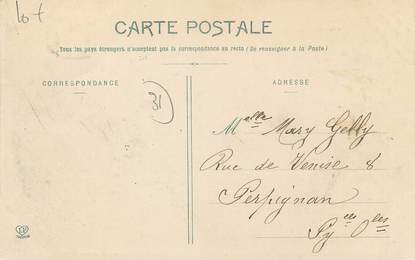 Lot
CARTE POSTALE
Tous les pays étrangers n'acceptent pas la correspondance au recto (Se renseigner à la Poste)
CORRESPONDANCE
ADRESSE
31
Melle Mary Gelly
Rue de Venise 8
Perpignan
Pyees Oles